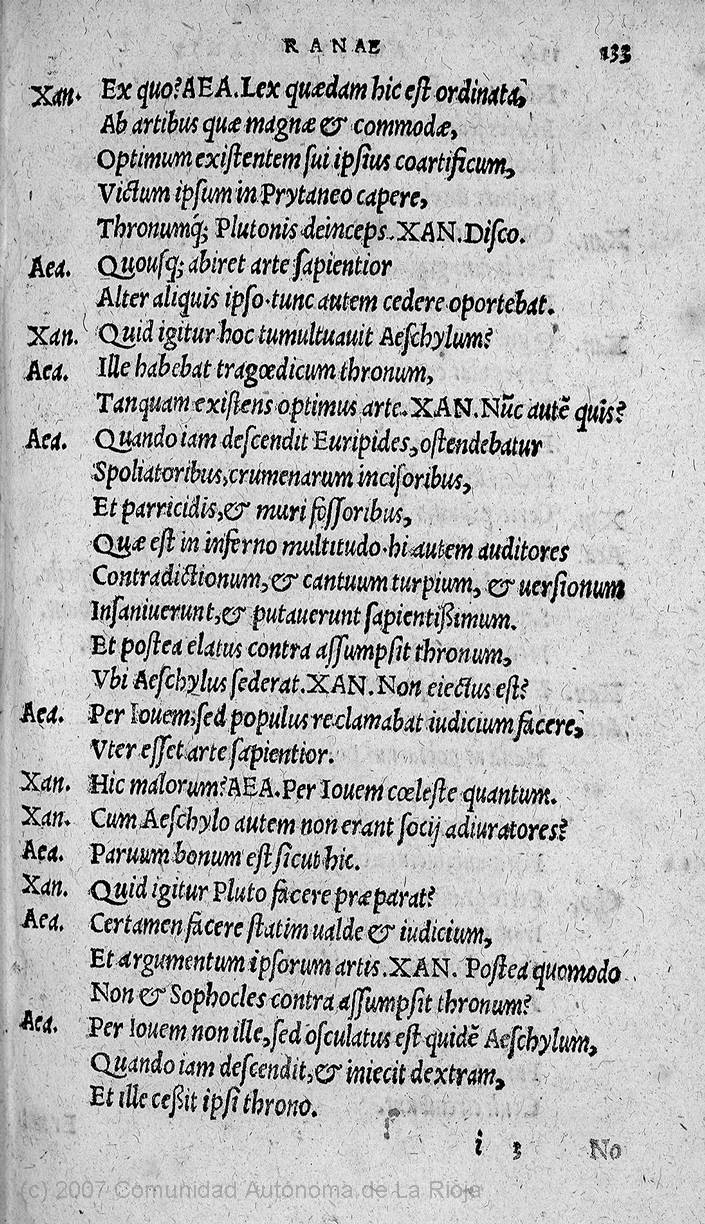 RANAE 133
Xan. Ex quo? AEA. Lex quædam hic eſt ordinata,
Ab artibus quæ magnæ & commodæ,
Optimum exiſtentem ſui ipſius coartificum,
Victum ipſum in Prytaneo capere,
Thronumq́; Plutonis deinceps. XAN. Diſco.
Aea. Quouſq; abiret arte ſapientior
Alter aliquis ipſo. tunc autem cedere oportebat.
Xan. Quid igitur hoc tumultuauit Aeſchylum?
Aea. Ille habebat tragœdicum thronum,
Tanquam exiſtens optimus arte. XAN. Nūc autē quis?
Aea. Quando iam deſcendit Euripides, oſtendebatur
Spoliatoribus, crumenarum inciſoribus,
Et parricidis, & muri foſſoribus,
Quæ eſt in inferno multitudo. hi autem auditores
Contradictionum, & cantuum turpium, & uerſionum
Inſaniuerunt, & putauerunt ſapientißimum.
Et poſtea elatus contra aſſumpſit thronum,
Vbi Aeſchylus ſederat. XAN. Non eiectus eſt?
Aea. Per Iouem, ſed populus reclamabat iudicium facere,
Vter eſſet arte ſapientior.
Xan. Hic malorum? AEA. Per Iouem cœleſte quantum.
Xan. Cum Aeſchylo autem non erant ſocij adiuratores?
Aea. Paruum bonum eſt ſicut hic.
Xan. Quid igitur Pluto facere præparat?
Aea. Certamen facere ſtatim ualde & iudicium,
Et argumentum ipſorum artis. XAN. Poſtea quomodo
Non & Sophocles contra aſſumpſit thronum?
Aea. Per Iouem non ille, ſed oſculatus eſt quidē Aeſchylum,
Quando iam deſcendit, & iniecit dextram,
Et ille ceßit ipſi throno.
i 3 No
(c) 2007 Comunidad Autónoma de La Rioja